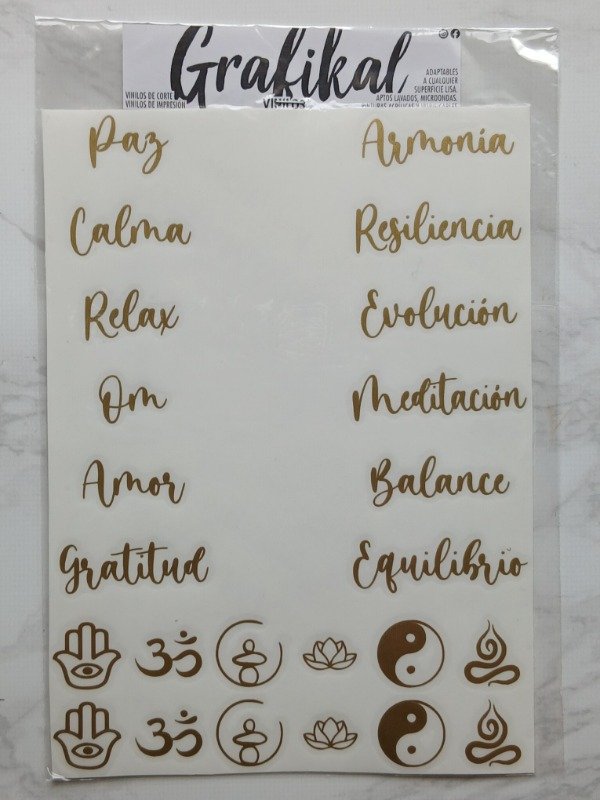 Grafikal
VINILOS
VINILOS DE CORTE
VINILOS DE IMPRESIÓN
ADAPTABLES
A CUALQUIER
SUPERFICIE LISA.
APTOS LAVADOS, MICROONDAS,
Paz
Armonía
Calma
Resiliencia
Relax
Evolución
Om
Meditación
Amor
Balance
Gratitud
Equilibrio
ॐ
ॐ